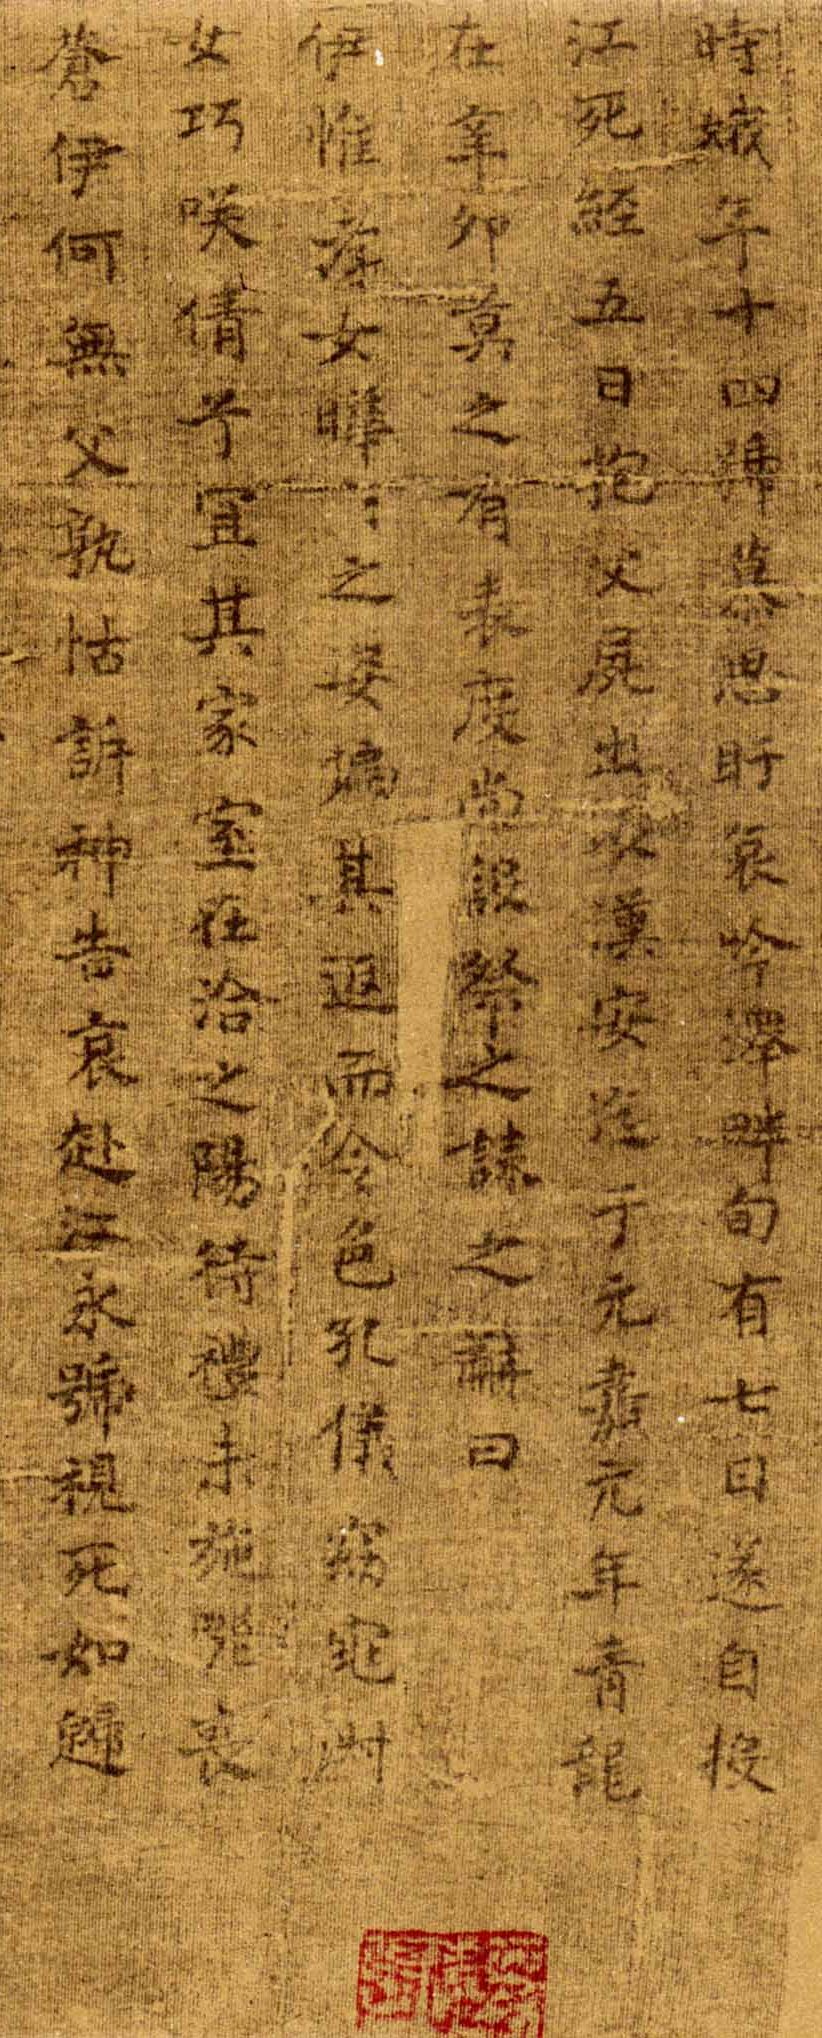 時娥年十四號慕思盱哀吟澤畔旬有七日遂自投
江死經五日抱父屍出以漢安迄于元嘉元年青龍
在辛卯莫之有表度尚設祭之誄之辭曰
伊惟孝女曄〻之姿偏其返而令色孔儀窈窕淑
女巧咲倩兮宜其家室在洽之陽待禮未施嗟喪
蒼伊何無父孰怙訴神告哀赴江永號視死如歸